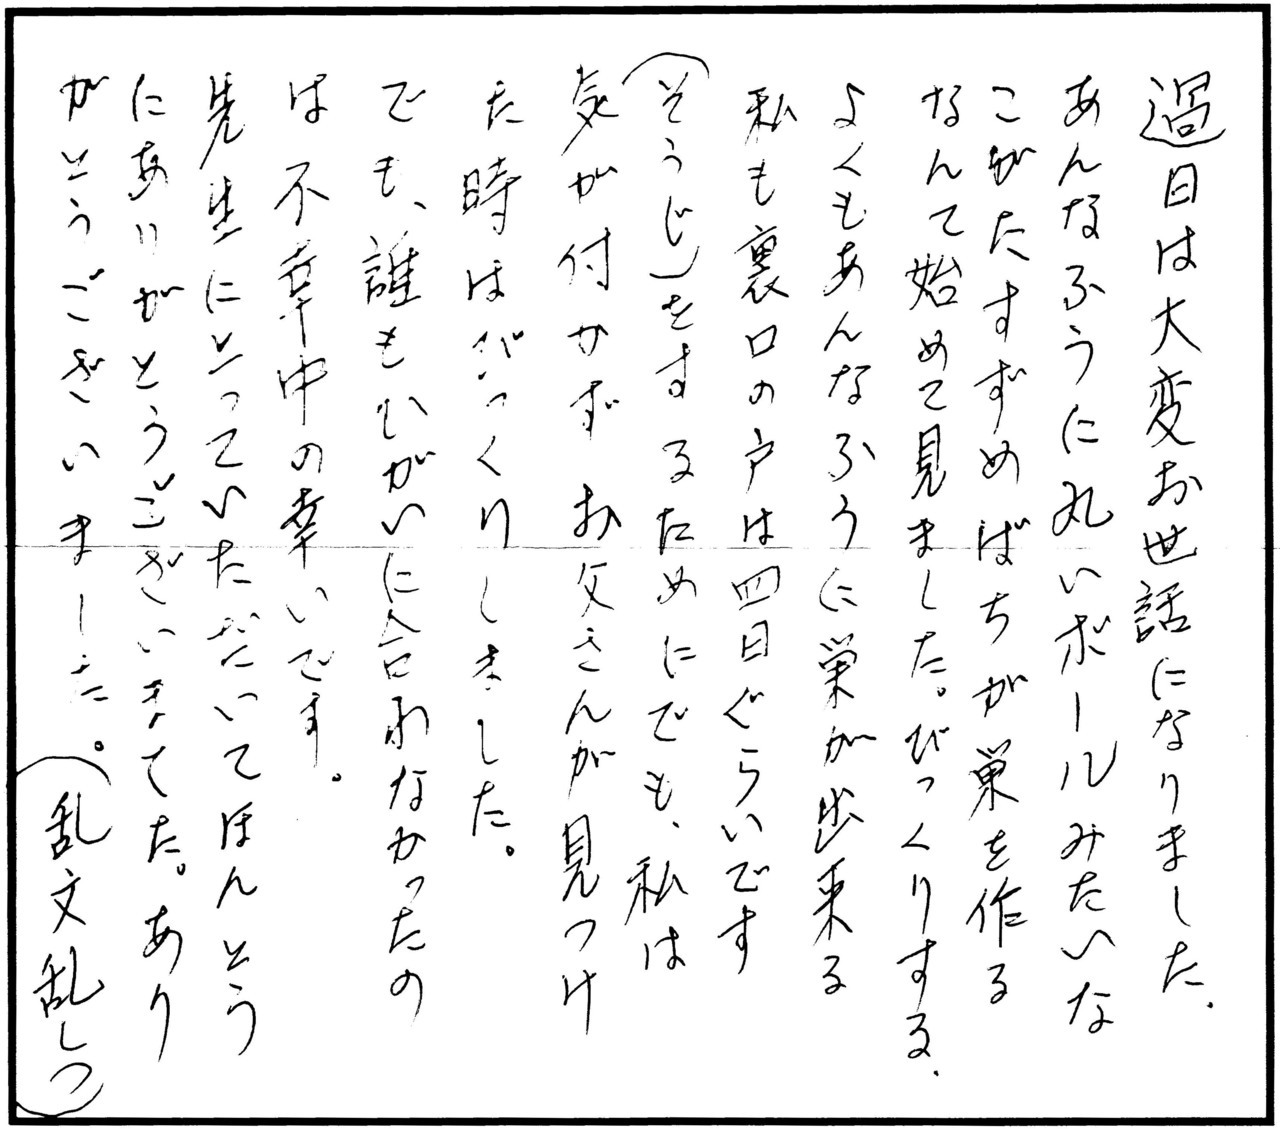 過日は大変お世話になりました、
あんなふうに丸いボールみたいな
こがたすずめばちが巣を作る
なんて始めて見ました。びっくりする、
よくもあんなふうに巣が出来る
私も裏口の戸は四日ぐらいです
(そうじ)をするためにでも、私は
気が付かず お父さんが見つけ
た時はびっくりしました。
でも、誰もひがいに合わなかったの
は不幸中の幸いです。
先生にとっていただいてほんとう
にありがとうございまてた。あり
がとうございました。(乱文乱しつ)